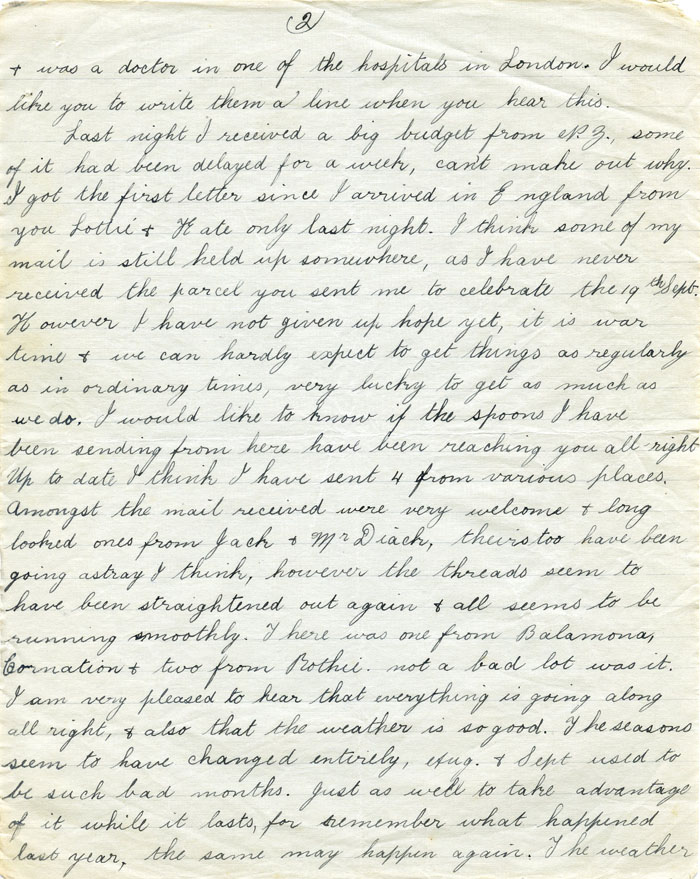 2
& was a doctor in one of the hospitals in London. I would
like you to write them a line when you hear this.
Last night I received a big budget from N.Z., some
of it had been delayed for a week, can't make out why.
I got the first letter since I arrived in England from
you Lottie & Kate only last night. I think some of my
mail is still held up somewhere, as I have never
received the parcel you sent me to celebrate the 19th Sept.
However I have not given up hope yet, it is war
time & we can hardly expect to get things as regularly
as in ordinary times, very lucky to get as much as
we do. I would like to know if the spoons I have
been sending from here have been reaching you all right
Up to date I think I have sent 4 from various places.
Amongst the mail received were very welcome & long
looked ones from Jack & Mr Diack, theirs too have been
going astray I think, however the threads seem to
have been straightened out again & all seems to be
running smoothly. There was one from Balamona,
Cornation & two from Rothie. not a bad lot was it.
I am very pleased to hear that everything is going along
all right, & also that the weather is so good. The seasons
seem to have changed entirely, Aug. & Sept used to
be such bad months. Just as well to take advantage
of it while it lasts, for remember what happened
last year, the same may happen again. The weather